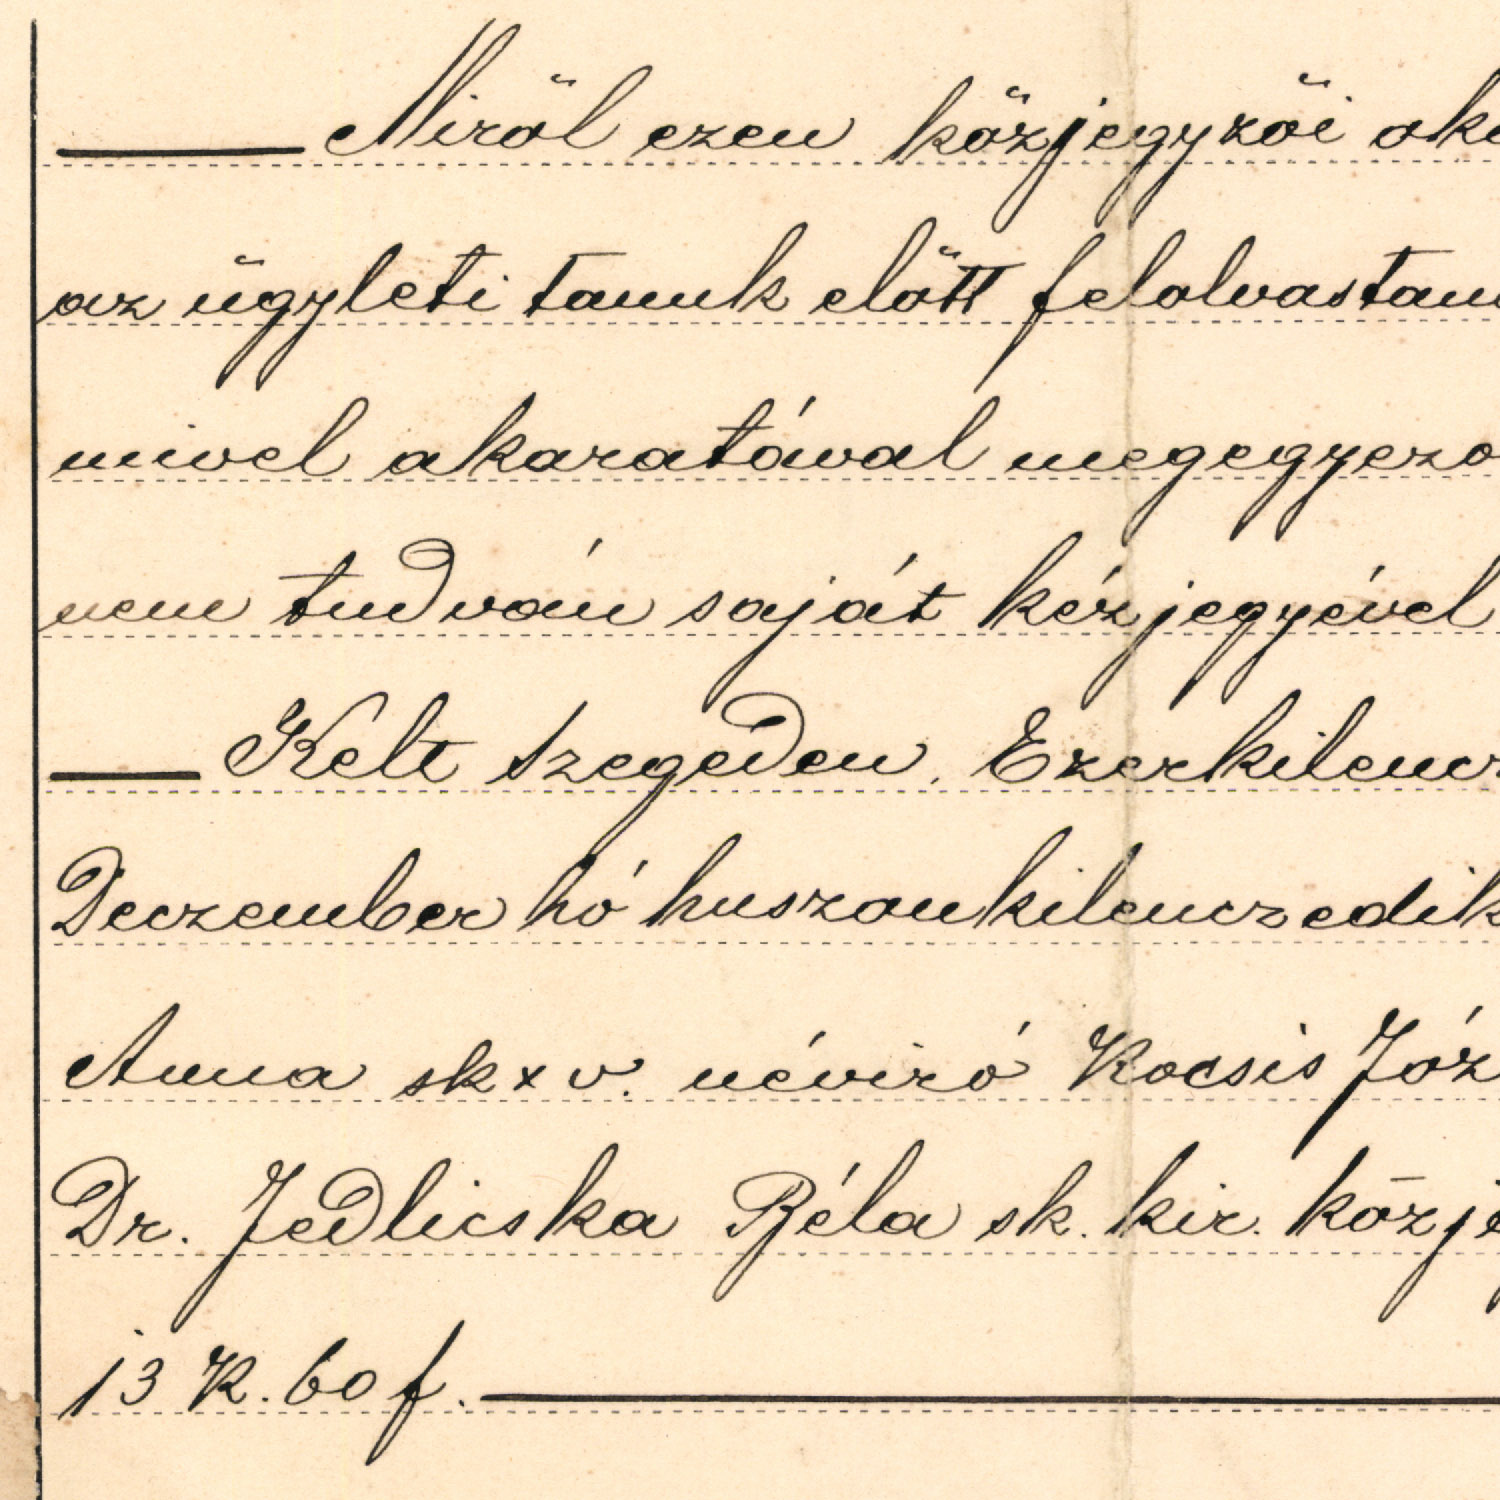 Miröl ezen közjegyzöi oka
az ügyleti tanuk elött felolvastam
mivel akaratával megegyezo
nem tudván saját kézjegyével
Kelt Szegeden. Ezerkilencz
Deczember hó huszonkilenczedik
Anna sk x v. néviró Kocsis Józ
Dr. Jedlicska Béla sk. kir. közje
13 K. 60 f.